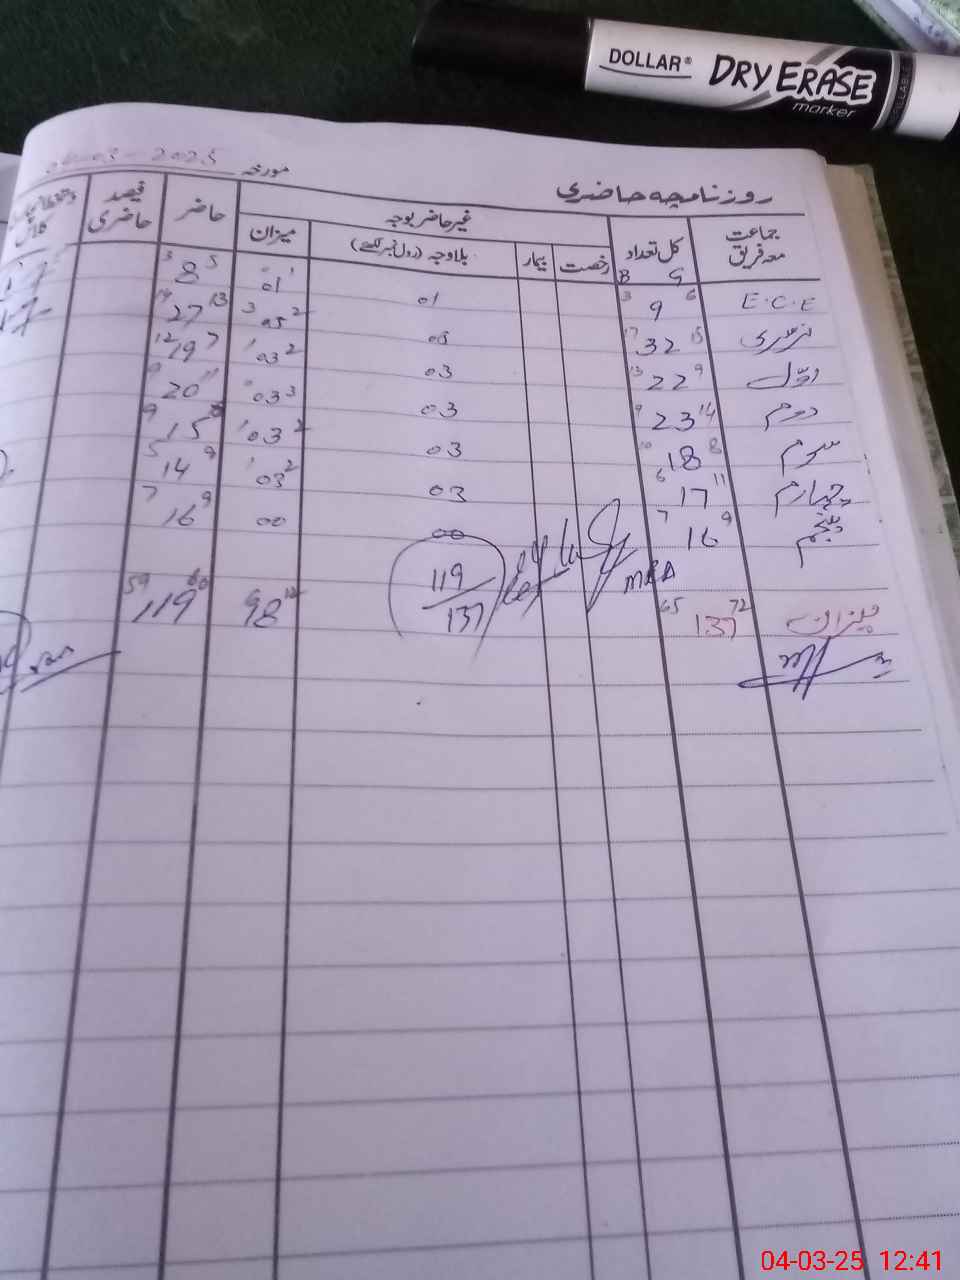 DOLLAR® DRY ERASE
marker
مورخہ 04-03-2025
روزنامچہ حاضری
جماعت معہ فریق کل تعداد غیر حاضر بوجہ حاضر فیصد حاضری
رخصت بیمار بلاوجہ (رول نمبر لکھیے) میزان
B G
E.C.E 3 9 6 01 0 01 1 3 8 5
نرسری 17 32 15 05 3 05 2 14 27 13
اوّل 13 22 9 03 1 03 2 12 19 7
دوم 9 23 14 03 0 03 3 9 20 11
سوم 10 18 8 03 1 03 2 9 15
چہارم 6 17 11 03 1 03 2 5 14 9
پنجم 7 16 9 00 00 7 16 9
MEA
119
137
میزان 65 137 72 59 119 60
04-03-25 12:41